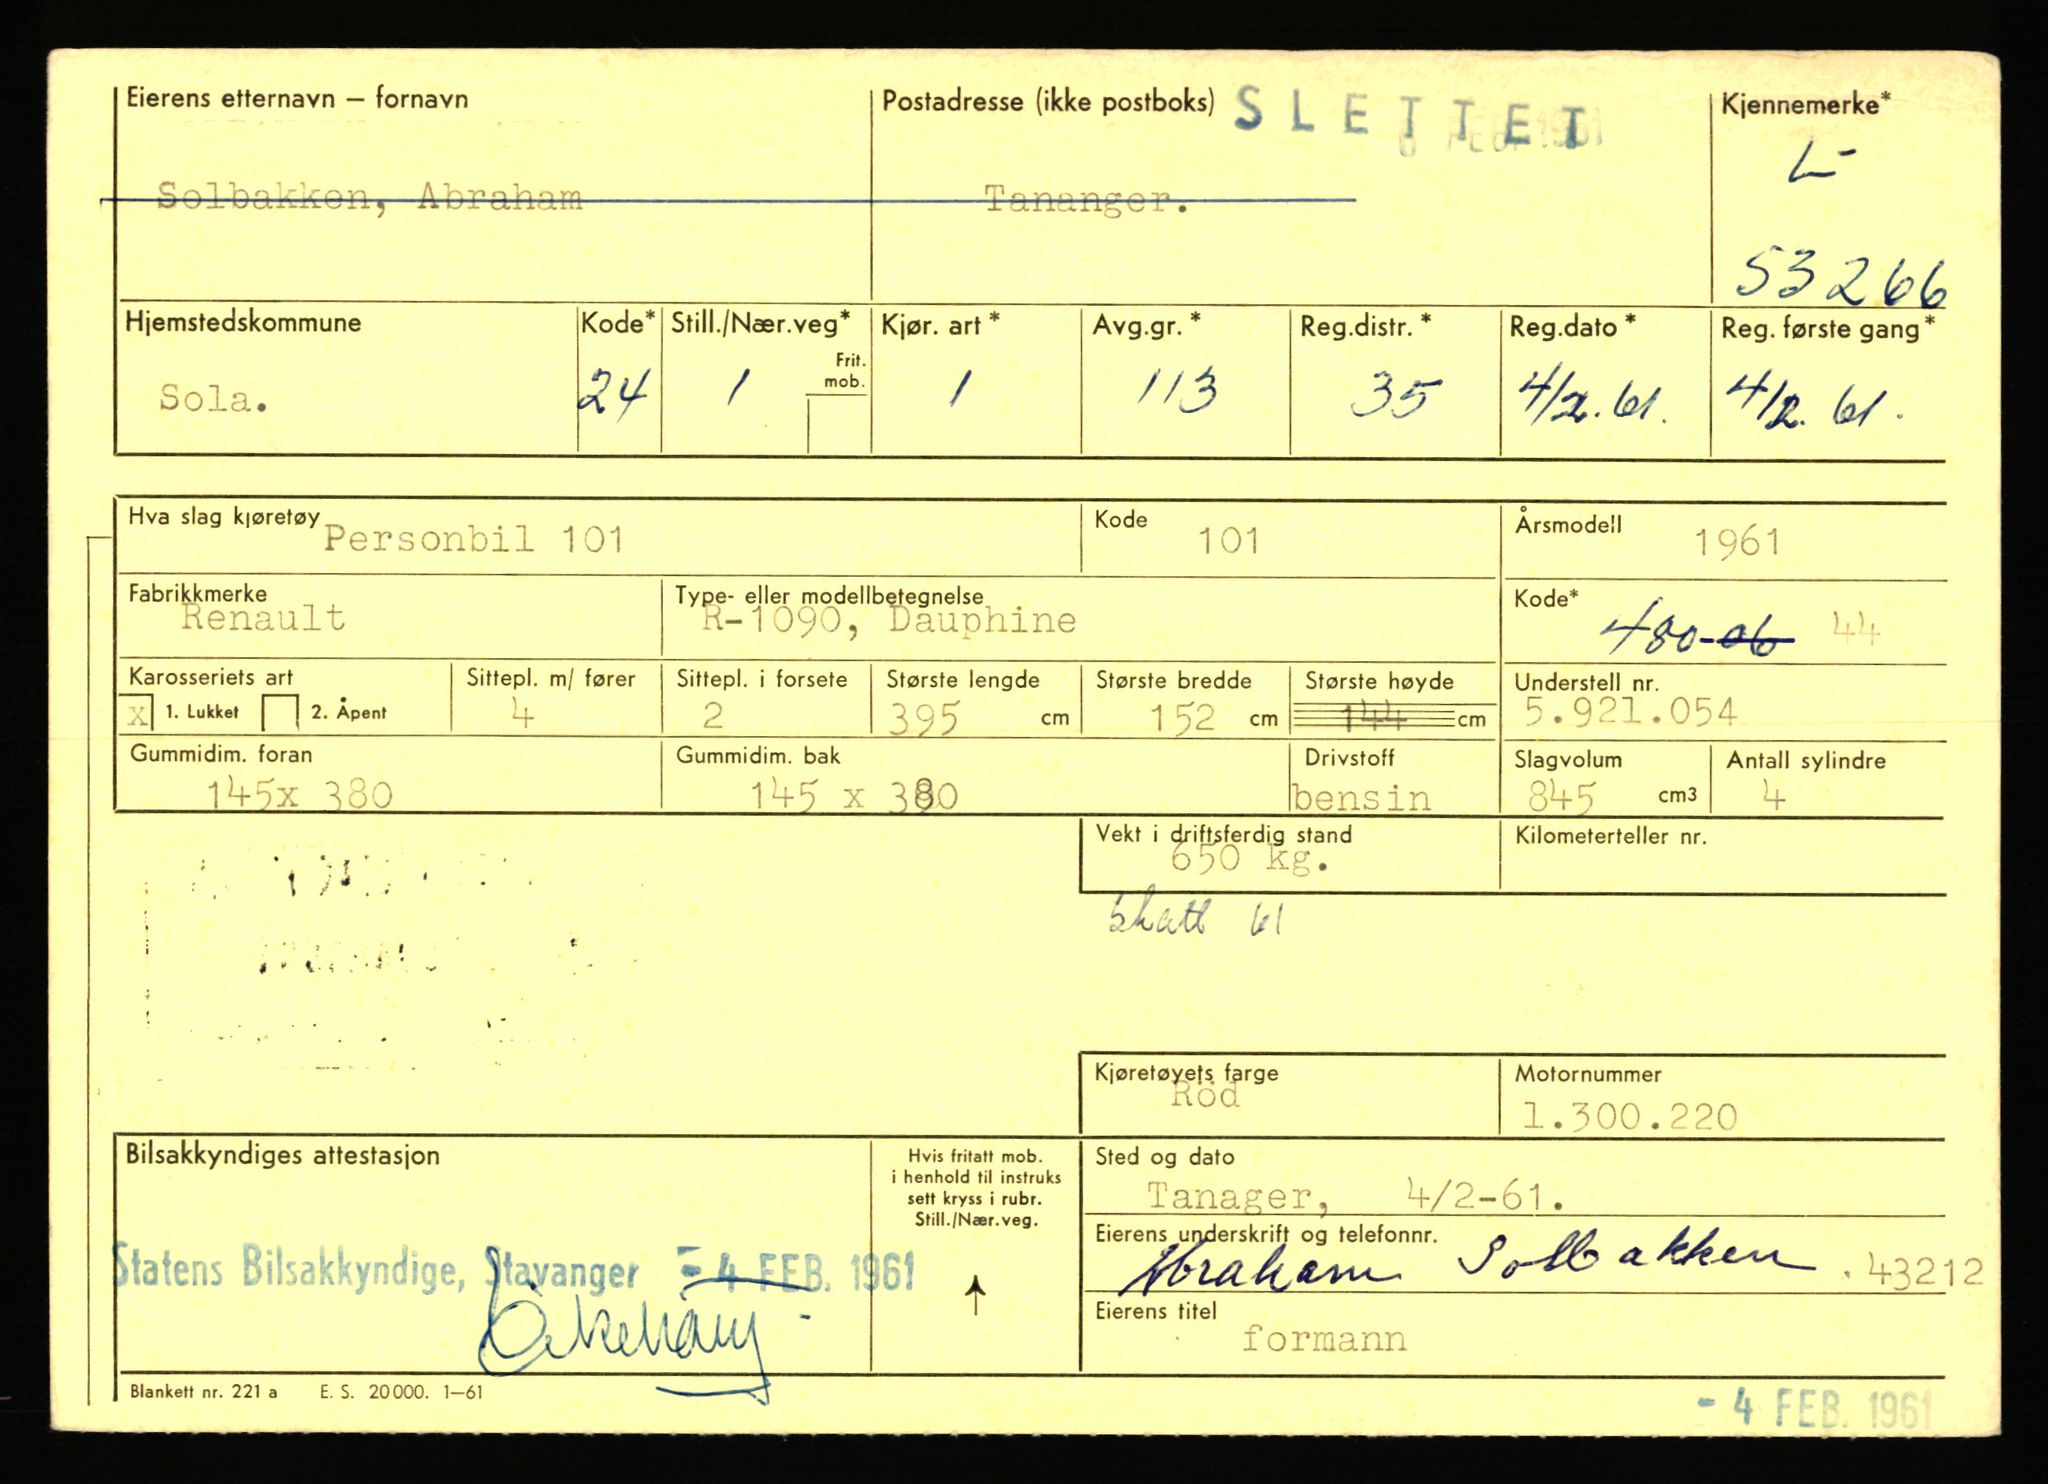 Eierens etternavn – fornavn
Postadresse (ikke postboks)
SLETTET
Kjennemerke*
L-
Solbakken, Abraham
Tananger.
53266
Hjemstedskommune
Kode*
Still./Nær.veg*
Kjør. art*
Avg.gr.*
Reg.distr.*
Reg.dato*
Reg. første gang*
Frit. mob.
Sola.
24
1
1
113
35
4/2. 61.
4/2. 61.
Hva slag kjøretøy
Personbil 101
Kode
101
Årsmodell
1961
Fabrikkmerke
Renault
Type- eller modellbetegnelse
R-1090, Dauphine
Kode*
480-06 44
Karosseriets art
x 1. Lukket
2. Åpent
Sittepl. m/ fører
4
Sittepl. i forsete
2
Største lengde
395 cm
Største bredde
152 cm
Største høyde
144 cm
Understell nr.
5.921.054
Gummidim. foran
145x 380
Gummidim. bak
145 x 380
Drivstoff
bensin
Slagvolum
845 cm3
Antall sylindre
4
Vekt i driftsferdig stand
650 kg.
Kilometerteller nr.
Skatt 61
Kjøretøyets farge
Röd
Motornummer
1.300.220
Bilsakkyndiges attestasjon
Hvis fritatt mob.
i henhold til instruks
sett kryss i rubr.
Still./Nær.veg.
Sted og dato
Tanager, 4/2-61.
Eierens underskrift og telefonnr.
Abraham Solbakken . 43212
Statens Bilsakkyndige, Stavanger - 4 FEB. 1961
Eierens titel
formann
Blankett nr. 221 a E. S. 20000. 1–61
- 4 FEB. 1961